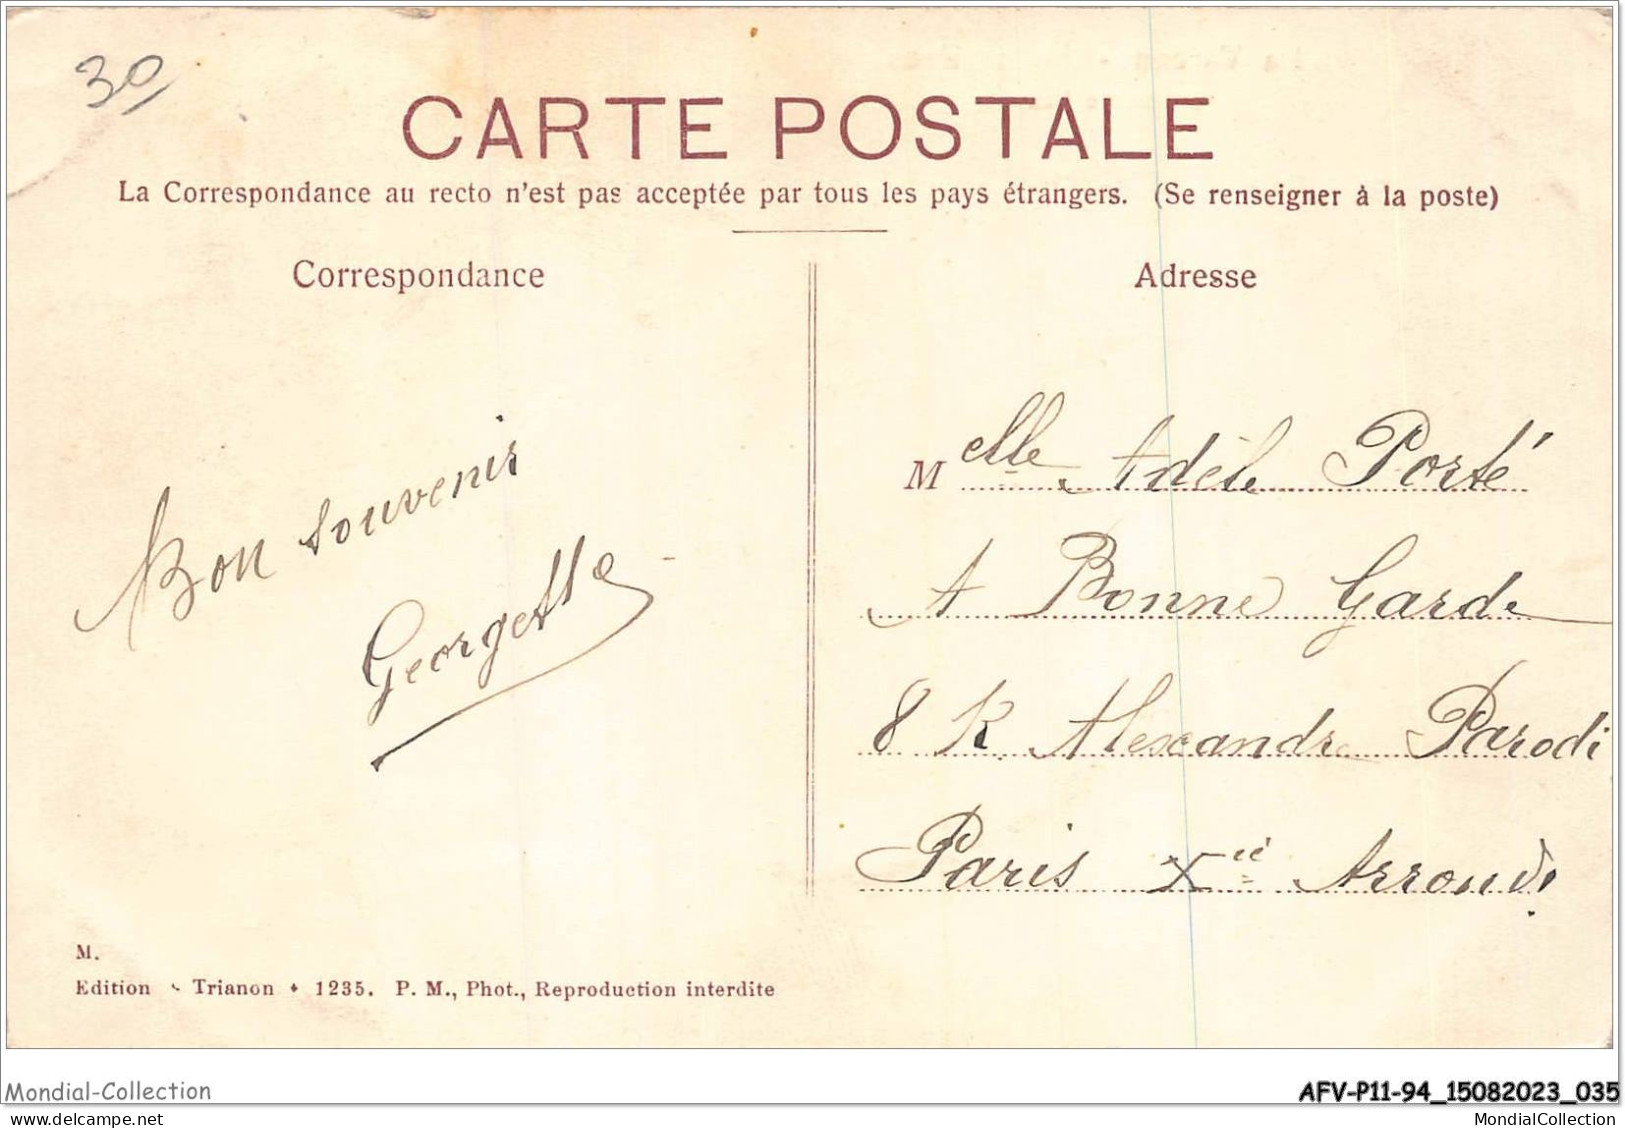 30
CARTE POSTALE
La Correspondance au recto n'est pas acceptée par tous les pays étrangers. (Se renseigner à la poste)
Correspondance
Bon souvenir
Georgette
Adresse
Melle Adèle Porté
A Bonne Garde
8 R. Alexandre Parodi
Paris Xe Arrond.
M.
Edition - Trianon • 1235. P. M., Phot., Reproduction interdite
Mondial-Collection
AFV-P11-94_15082023_035
MondialCollection